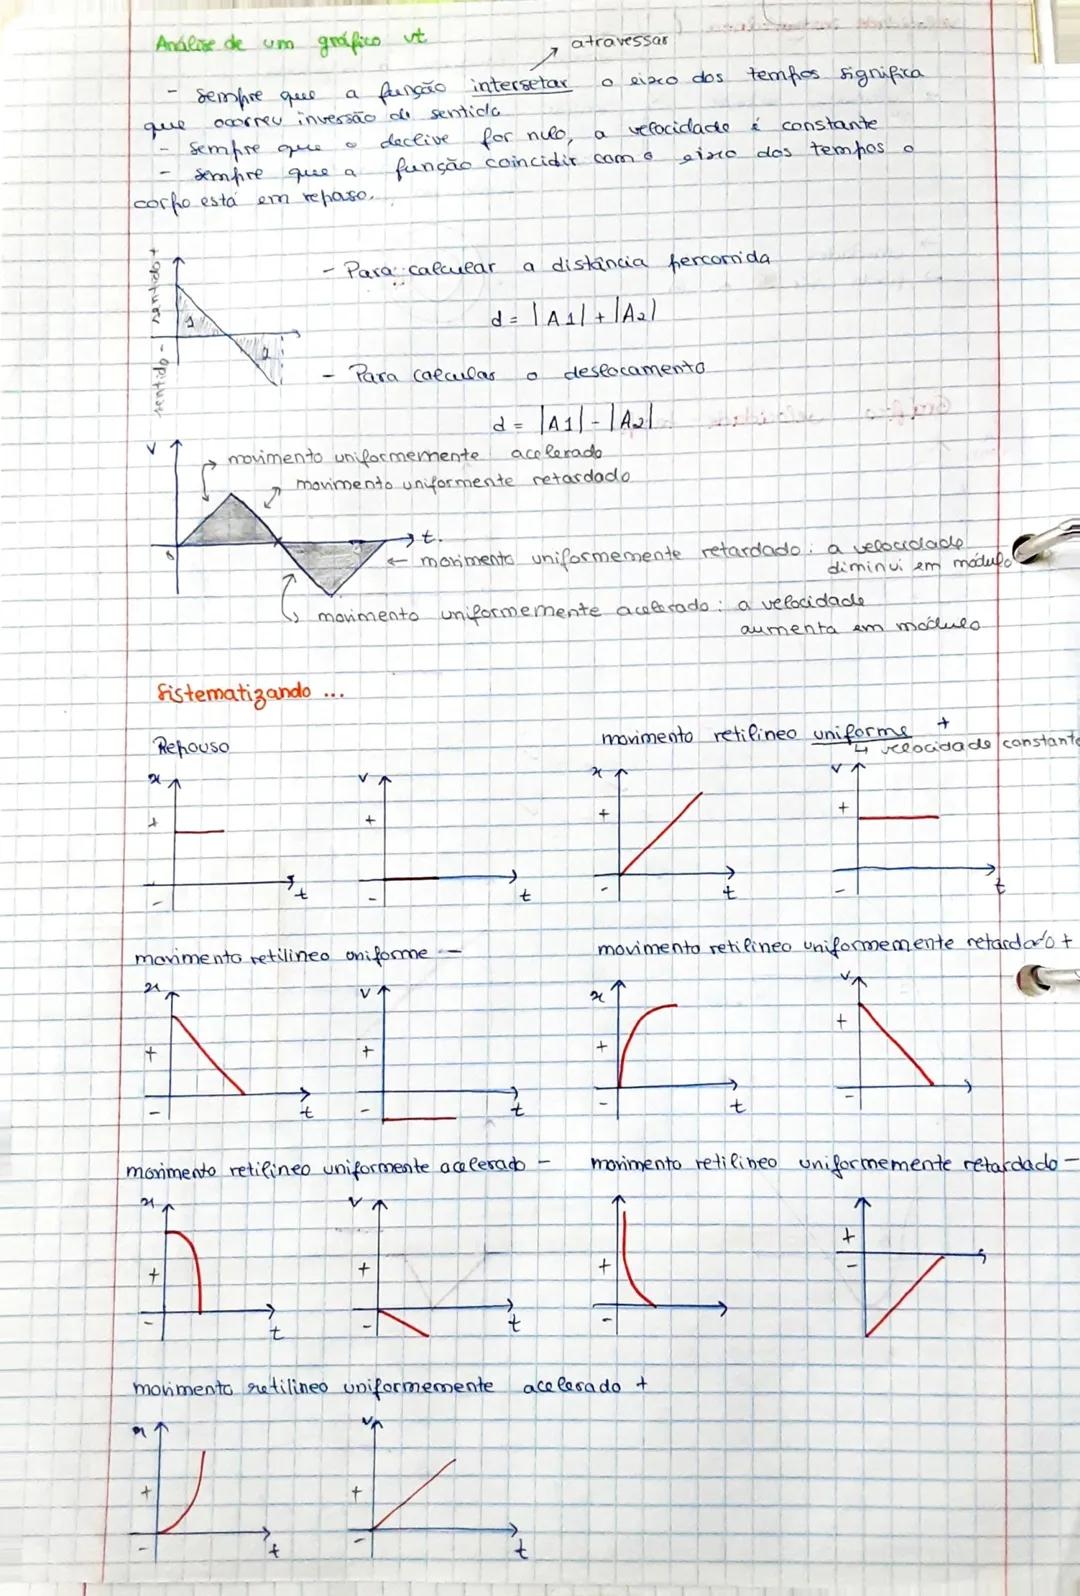 Análise de um gráfico vt
atravessar
- sempre que a função intersetar o eixo dos tempos significa
que ocorreu inversão de sentido
- sempre que o declive for nulo, a velocidade é constante
- sempre que a função coincidir com o eixo dos tempos o
corpo está em repouso.
sentido - sentido +
1
2
- Para calcular a distância percorrida
d = |A1| + |A2|
- Para calcular o deslocamento
d = |A1| - |A2|
v
movimento uniformemente acelerado
movimento uniformente retardado
t
movimento uniformemente retardado: a velocidade
diminui em módulo
movimento uniformemente acelerado: a velocidade
aumenta em módulo
Sistematizando ...
Repouso
movimento retilíneo uniforme +
↳ velocidade constante
x v x v
+ + + +
- - - -
t t t t
movimento retilíneo uniforme -
movimento retilíneo uniformemente retardado +
x v x v
+ + + +
- - - -
t t t
movimento retilíneo uniformente acelerado -
movimento retilíneo uniformemente retardado -
x v
+ + + +
- - - -
t t
movimento retilíneo uniformemente acelerado +
x v
+ +
- -
t t